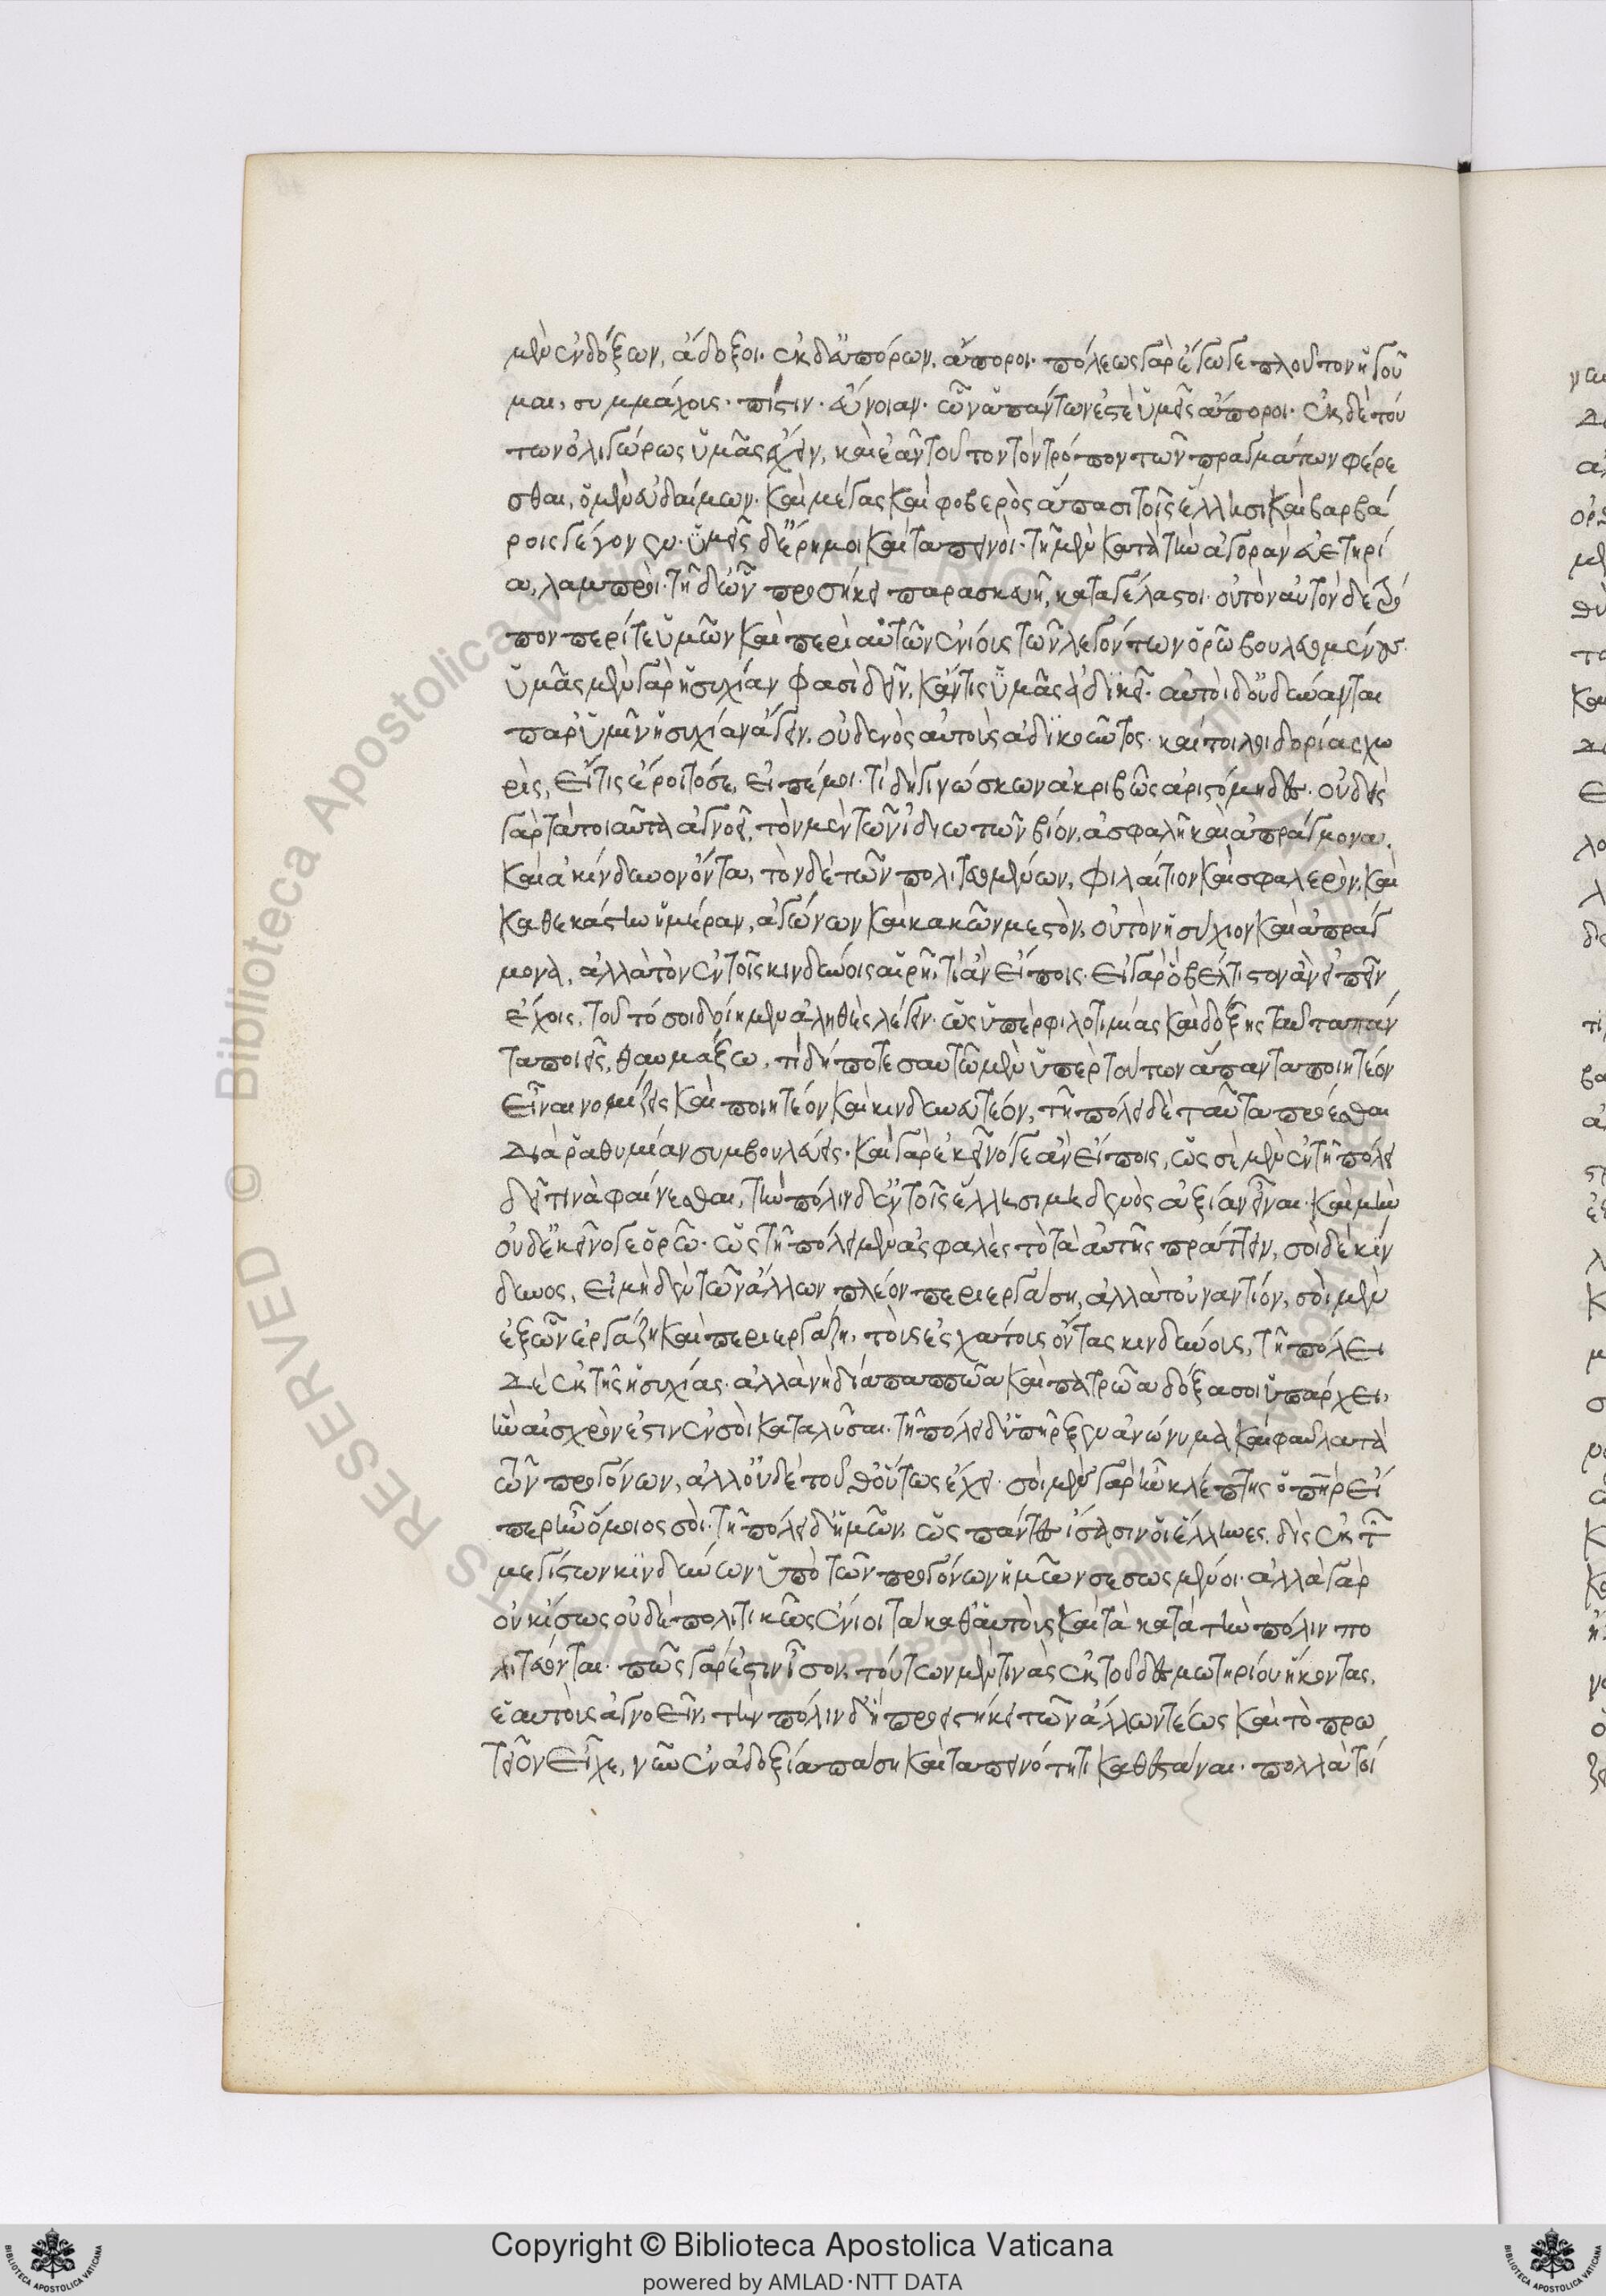 μὲν ἐνδόξων, ἄδοξοι. ἐκ δ' εὐπόρων, ἄποροι. πόλεως γὰρ ἔγωγε πλοῦτον ἡγοῦ
μαι, συμμάχους. πίστιν. εὔνοιαν. ὧν ἁπάντων ἐστὲ ὑμεῖς ἄποροι. ἐκ δὲ τού
των ὀλιγώρως ὑμᾶς ἔχειν, καὶ ἐᾶν τοῦτον τὸν τρόπον τῶν πραγμάτων φέρε
σθαι, ὁ μὲν εὐδαίμων. καὶ μέγας καὶ φοβερὸς ἅπασι τοῖς ἕλλησι καὶ βαρβά
ροις γέγονεν. ὑμεῖς δ' ἔρημοι καὶ ταπεινοὶ. τῇ μὲν κατὰ τὴν ἀγορὰν εὐετηρί
α, λαμπροὶ. τῇ δ' ὧν προσῆκε παρασκευῇ, καταγέλαστοι. οὐ τὸν αὐτὸν δὲ τρό
πον περί τε ὑμῶν καὶ περὶ αὑτῶν ἐνίους τῶν λεγόντων ὁρῶ βουλευομένους.
ὑμᾶς μὲν γὰρ ἡσυχίαν φασὶ δεῖν, κἄν τις ὑμᾶς ἀδικεῖ. αὐτοὶ δ' οὐ δύνανται
παρ' ὑμῖν ἡσυχίαν ἄγειν, οὐδενὸς αὐτοὺς ἀδικοῦντος. καίτοι λοιδορίας χω
ρὶς, εἴ τις ἔροιτό σε, εἰπέ μοι. τί δὴ γινώσκων ἀκριβῶς ἀριστόμηδες. οὐδεὶς
γὰρ τὰ τοιαῦτα ἀγνοεῖ, τὸν μὲν τῶν ἰδιωτῶν βίον, ἀσφαλῆ καὶ ἀπράγμονα.
καὶ ἀκίνδυνον ὄντα, τὸν δὲ τῶν πολιτευομένων, φιλαίτιον καὶ σφαλερὸν, καὶ
καθ' ἑκάστην ἡμέραν, ἀγώνων καὶ κακῶν μεστὸν, οὐ τὸν ἡσύχιον καὶ ἀπράγ
μονα, ἀλλὰ τὸν ἐν τοῖς κινδύνοις αἱρῇ, τί ἂν εἴποις. εἰ γὰρ ὃ βέλτιστον ἂν εἰπεῖν
ἔχοις, τοῦτό σοι δοίημεν ἀληθὲς λέγειν. ὡς ὑπὲρ φιλοτιμίας καὶ δόξης ταῦτα πάν
τα ποιεῖς, θαυμάζω, τί δή ποτε σαυτῷ μὲν ὑπὲρ τούτων ἅπαντα ποιητέον
εἶναι νομίζεις καὶ ποιητέον καὶ κινδυνευτέον, τῇ πόλει δὲ ταῦτα προέσθαι
διὰ ῥαθυμίαν συμβουλεύεις. καὶ γὰρ ἐκεῖνό γε ἂν εἴποις, ὡς σὲ μὲν ἐν τῇ πόλει
δεῖ τινὰ φαίνεσθαι, τὴν πόλιν δ' ἐν τοῖς ἕλλησι μηδενὸς ἀξίαν εἶναι. καὶ μὴν
οὐδ' ἐκεῖνό γε ὁρῶ. ὡς τῇ πόλει μὲν ἀσφαλὲς τὸ τὰ αὑτῆς πράττειν, σοὶ δὲ κίν
δυνος, εἰ μηδὲν τῶν ἄλλων πλέον περιεργάσῃ, ἀλλὰ τοὐναντίον, σοὶ μὲν
ἐξ ὧν ἐργάζῃ καὶ περιεργάζῃ, τοὺς ἐσχάτους ὄντας κινδύνους, τῇ πόλει
δὲ ἐκ τῆς ἡσυχίας. ἀλλὰ νὴ δία παππῴα καὶ πατρῴα δόξα σοι ὑπάρχει,
ἣν αἰσχρὸν ἐστιν ἐν σοὶ καταλῦσαι. τῇ πόλει δ' ὑπῆρξεν ἀνώνυμα καὶ φαῦλα τὰ
τῶν προγόνων, ἀλλ' οὐδὲ τοῦθ' οὕτως ἔχει. σοὶ μὲν γὰρ ἦν κλέπτης ὁ πατὴρ εἴ
περ ἦν ὅμοιος σοὶ. τῇ πόλει δ' ἡμῶν, ὡς πάντες ἴσασιν οἱ ἕλληνες, δὶς ἐκ τῶν
μεγίστων κινδύνων ὑπὸ τῶν προγόνων ἡμῶν σεσωσμένοι. ἀλλὰ γὰρ
οὐκ ἴσως οὐδὲ πολιτικῶς ἔνιοι τὰ καθ' αὑτοὺς καὶ τὰ κατὰ τὴν πόλιν πο
λιτεύονται. πῶς γάρ ἐστιν ἴσον, τούτων μὲν τινὰς ἐκ τοῦ δεσμωτηρίου ἥκοντας,
ἑαυτοὺς ἀγνοεῖν, τὴν πόλιν δ' ἣ προεστήκει τῶν ἄλλων τέως καὶ τὸ πρω
τεῖον εἶχε, νῦν ἐν ἀδοξίᾳ πάσῃ καὶ ταπεινότητι καθεστάναι. πολλὰ τοί